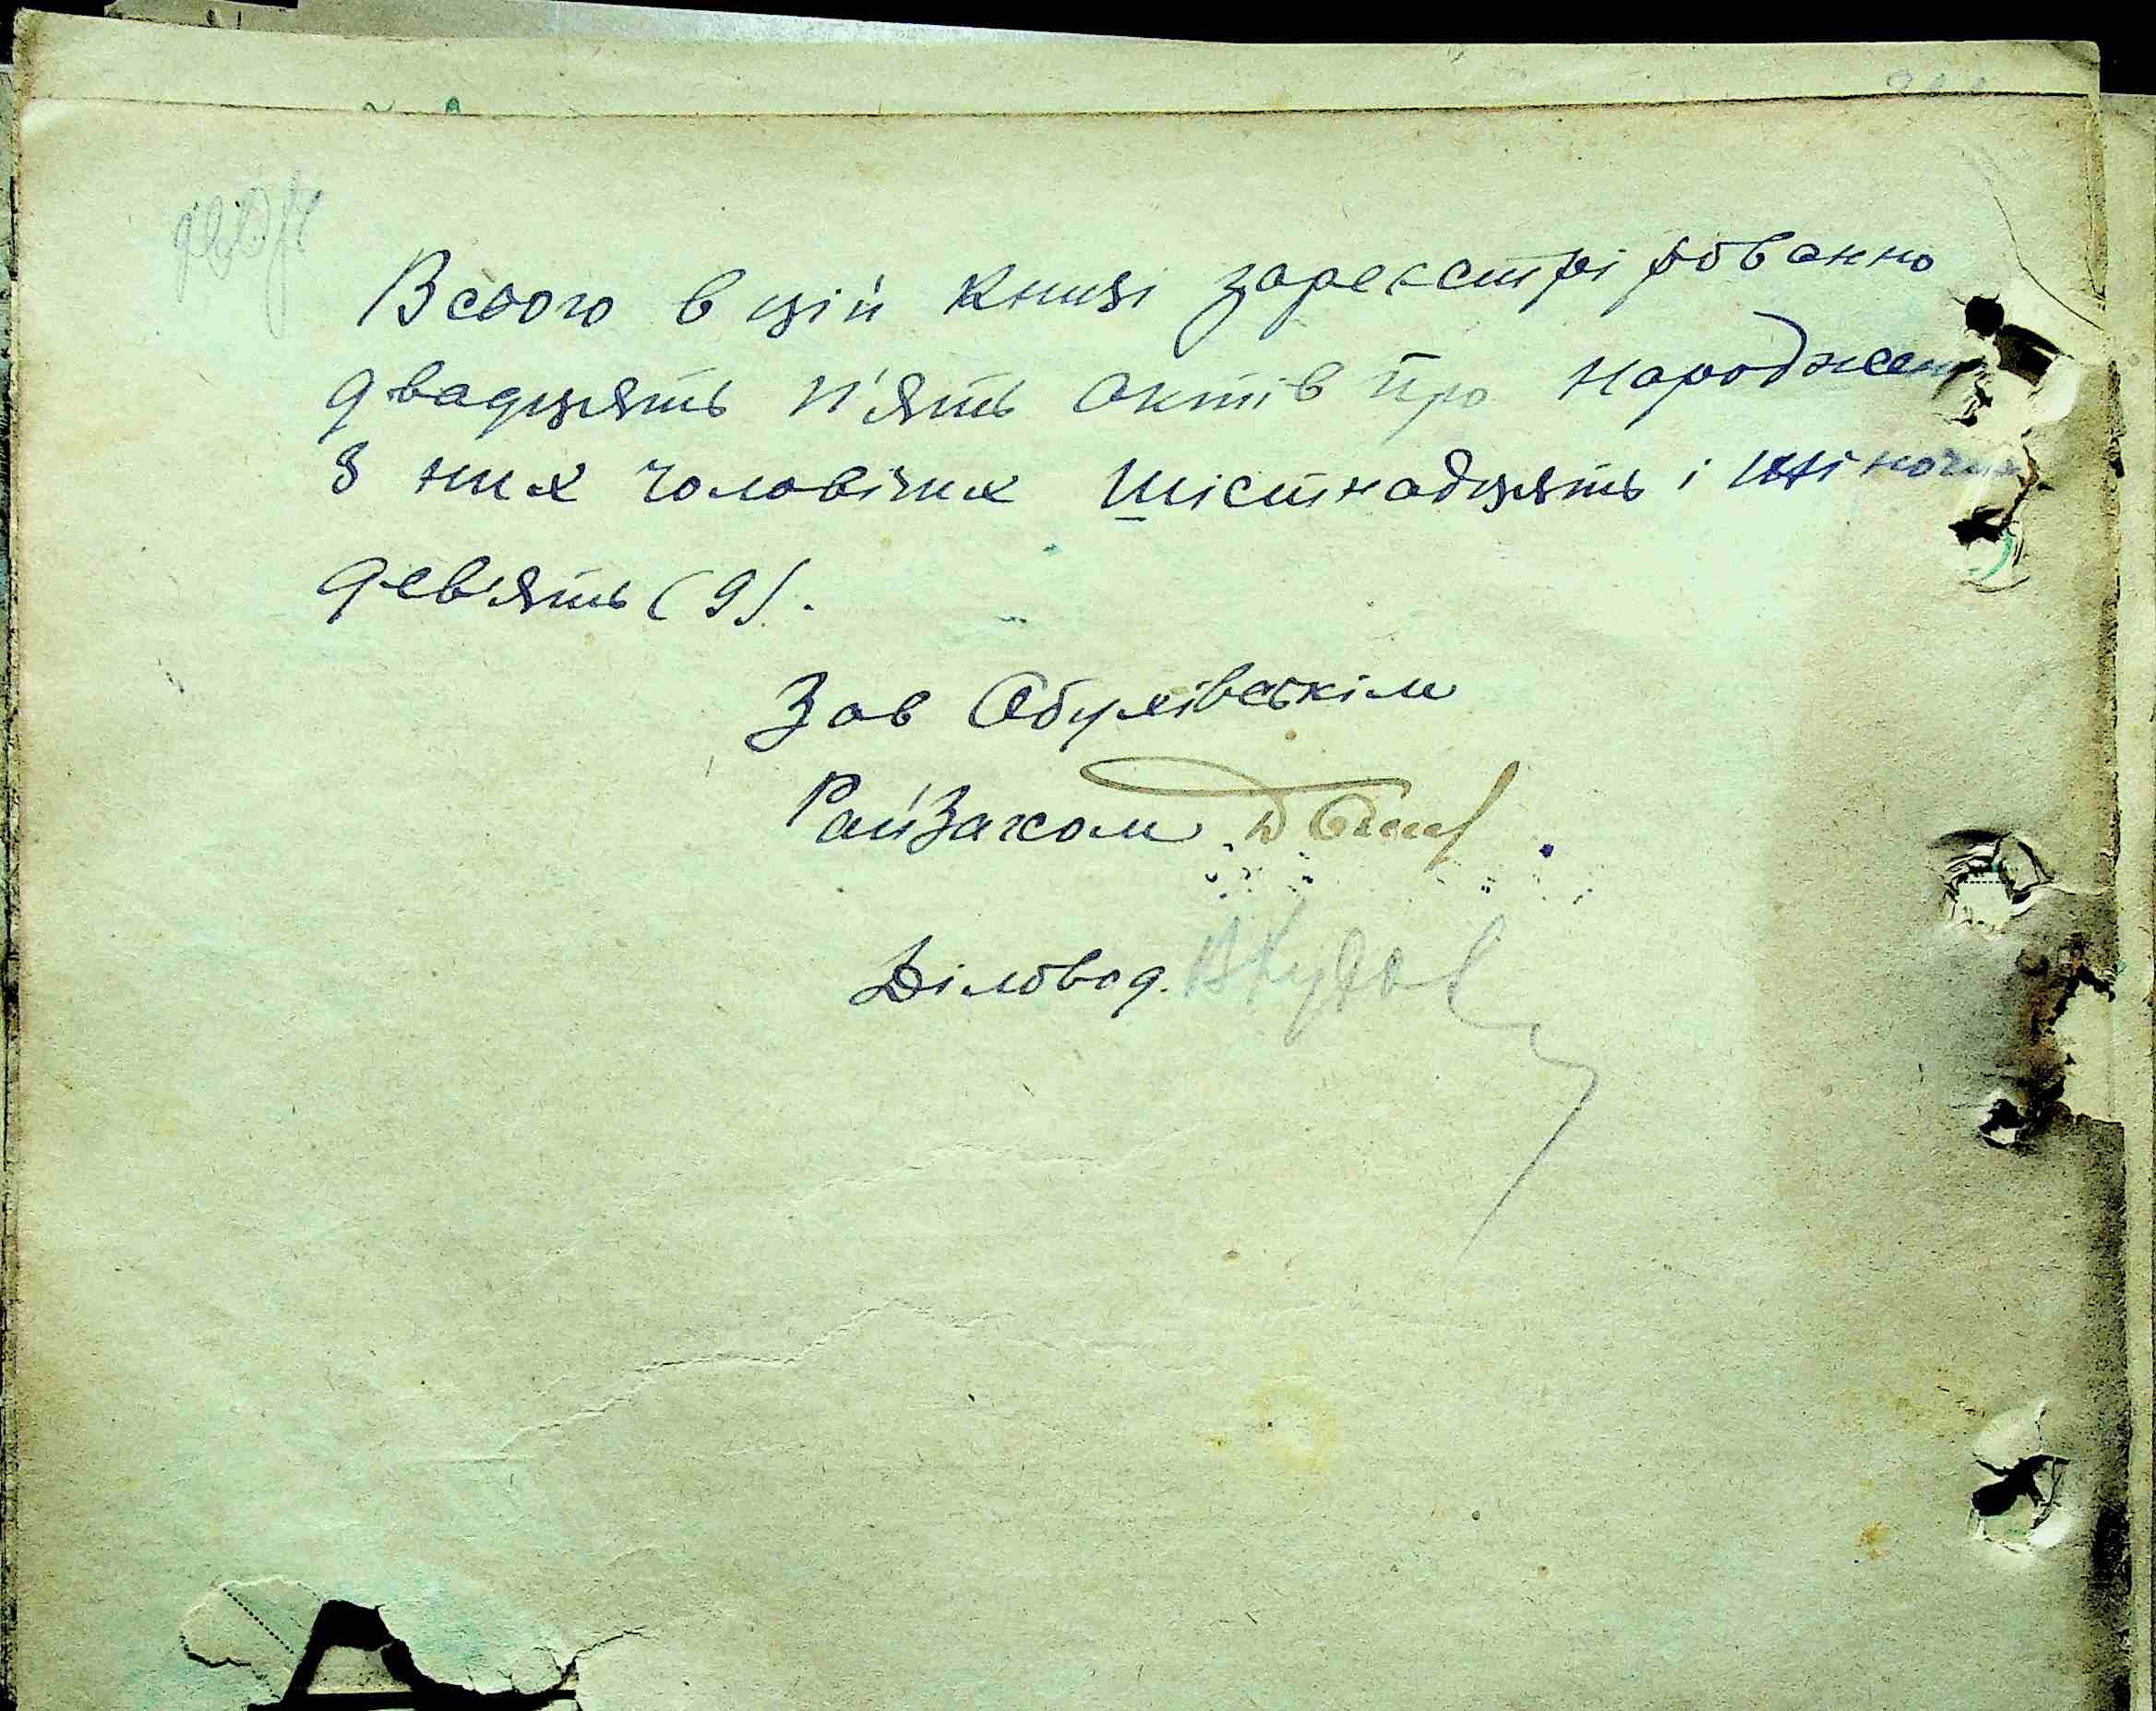 Всього в цій книзі зареєстрірованно
двадцять п'ять актів про народжен
з них чоловічих шістнадцять і жіночих
дев'ять (9).
Зав Обухівськім
Райзагсом
Діловод.